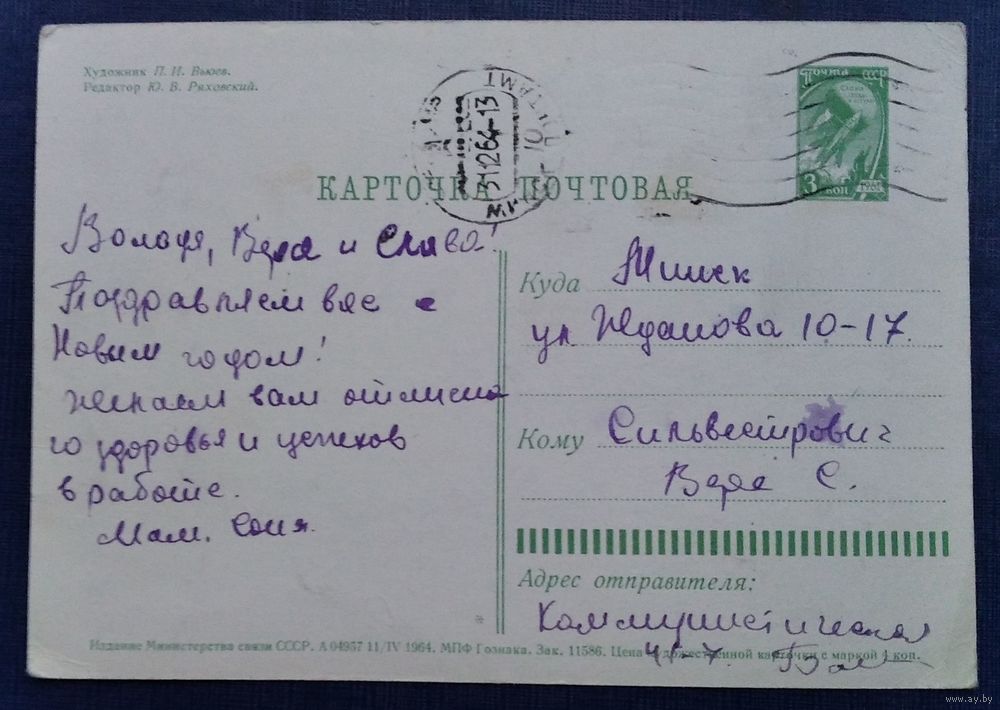 Художник П. И. Вьюев.
Редактор Ю. В. Ряховский.
ПОЧТА СССР
3 КОП
311264-13
КАРТОЧКА ПОЧТОВАЯ
Володя, Вера и Слава!
Поздравляем вас с
Новым годом!
Желаем вам отлично
го здоровья и успехов
в работе.
Мам. Соня.
Куда Минск
ул Жданова 10-17.
Кому Сильвестрович
Вера С.
Адрес отправителя:
Коммунистическая
41-7.
Издание Министерства связи СССР. А 04957 11/IV 1964. МПФ Гознака. Зак. 11586. Цена художественной карточки с маркой 4 коп.
www.ay.by